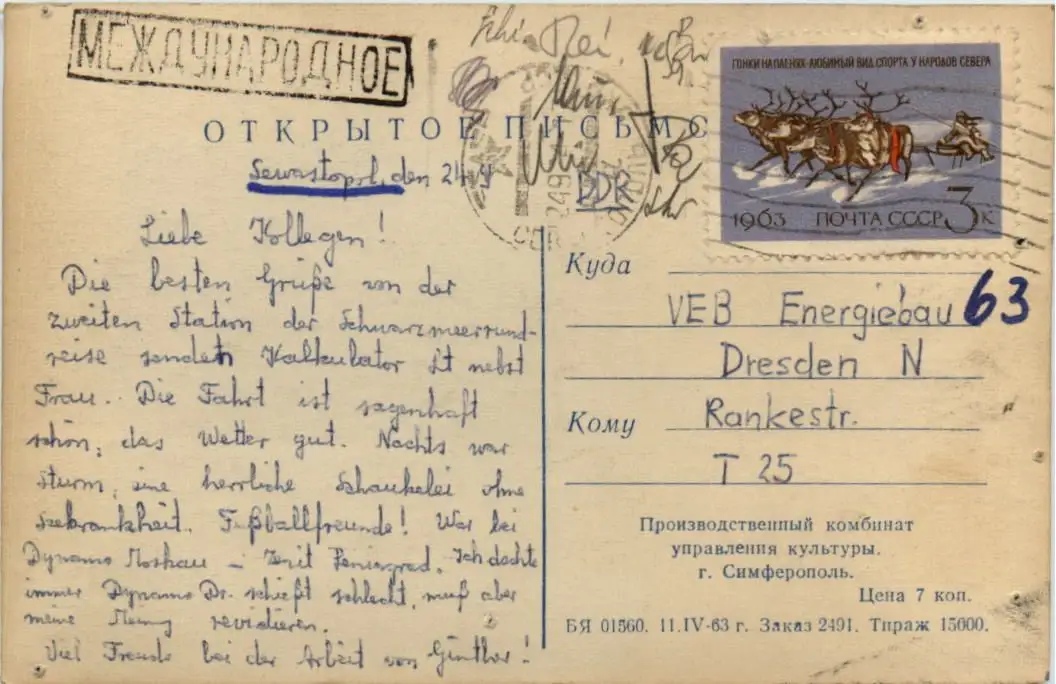 МЕЖДУНАРОДНОЕ
ОТКРЫТОЕ ПИСЬМО
ГОНКИ НА ОЛЕНЯХ-ЛЮБИМЫЙ ВИД СПОРТА У НАРОДОВ СЕВЕРА
1963 ПОЧТА СССР 3 К
Sewastopol, den 24.9
DDR
Liebe Kollegen!
Die besten Grüße von der
zweiten Station der Schwarzmeerrund-
reise sendet Kalkulator St nebst
Frau. Die Fahrt ist sagenhaft
schön, das Wetter gut. Nachts war
Sturm, eine herrliche Schaukelei ohne
Seekrankheit. Fußballfreunde! War bei
Dynamo Moskau – Zenit Leningrad. Ich dachte
immer Dynamo Dr. schießt schlecht, muß aber
meine Meinung revidieren.
Viel Freude bei der Arbeit von Günther!
Куда
VEB Energiebau 63
Dresden N
Кому Rankestr.
T 25
Производственный комбинат
управления культуры.
г. Симферополь.
Цена 7 коп.
БЯ 01560. 11.IV-63 г. Заказ 2491. Тираж 15000.